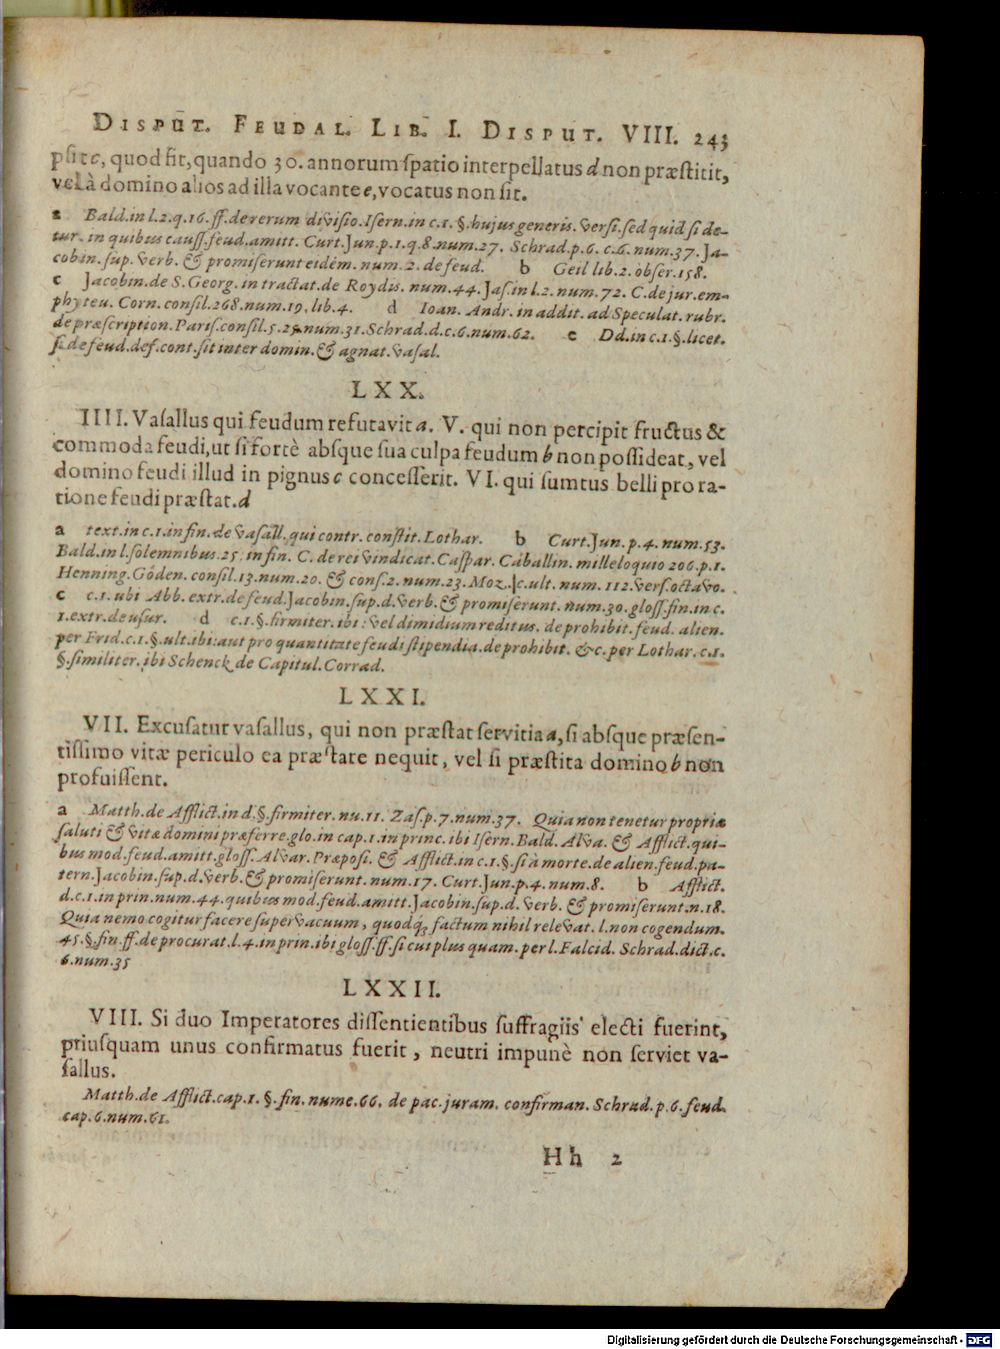 DISPUT. FEUDAL. LIB. I. DISPUT. VIII. 243
psit c, quod fit, quando 30. annorum spatio interpellatus d non præstitit,
vel à domino alios ad illa vocante e, vocatus non sit.
a Bald. in l. 2. q. 16. ff. de rerum divisio. Isern. in c. 1. §. hujus generis. versi. sed quid si de-
tur. in quibus causs. feud. amitt. Curt. Jun. p. 1. q. 8. num. 27. Schrad. p. 6. c. 6. num. 37. Ja-
cobin. sup. verb. & promiserunt eidem. num. 2. de feud. b Geil lib. 2. obser. 158.
c Jacobin. de S. Georg. in tractat. de Roydis. num. 44. Jas. in l. 2. num. 72. C. de jur. em-
phyteu. Corn. consil. 268. num. 19. lib. 4. d Ioan. Andr. in addit. ad Speculat. rubr.
de præscription. Paris. consil. 5. 25. num. 31. Schrad. d. c. 6. num. 62. e Dd. in c. 1. §. licet.
si de feud. def. cont. sit inter domin. & agnat. vasal.
LXX.
IIII. Vasallus qui feudum refutavit a. V. qui non percipit fructus &
commoda feudi, ut si fortè absque sua culpa feudum b non possideat, vel
domino feudi illud in pignus c concesserit. VI. qui sumtus belli pro ra-
tione feudi præstat. d
a text. in c. 1. in fin. de vasall. qui contr. constit. Lothar. b Curt. Jun. p. 4. num. 53.
Bald. in l. solemnibus. 25. in fin. C. de rei vindicat. Caspar. Caballin. milleloquio 206. p. 1.
Henning. Göden. consil. 13. num. 20. & cons. 2. num. 23. Moz. c. ult. num. 112. vers. octavo.
c c. 1. ubi Abb. extr. de feud. Jacobin. sup. d. verb. & promiserunt. num. 30. gloss. fin. in c.
1. extr. de usur. d c. 1. §. firmiter. ibi: vel dimidium reditus. de prohibit. feud. alien.
per Frid. c. 1. §. ult. ibi: aut pro quantitate feudi stipendia. de prohibit. &c. per Lothar. c. 1.
§. similiter. ibi Schenck de Capitul. Corrad.
LXXI.
VII. Excusatur vasallus, qui non præstat servitia a, si absque præsen-
tissimo vitæ periculo ea præstare nequit, vel si præstita domino b non
profuissent.
a Matth. de Afflict. in d. §. firmiter. nu. 11. Zas. p. 7. num. 37. Quia non tenetur propriæ
saluti & vitæ domini præferre. glo. in cap. 1. in princ. ibi Isern. Bald. Alva. & Afflict. qui-
bus mod. feud. amitt. gloss. Alvar. Præposi. & Afflict. in c. 1. §. si à morte. de alien. feud. pa-
tern. Jacobin. sup. d. verb. & promiserunt. num. 17. Curt. Jun. p. 4. num. 8. b Afflict.
d. c. 1. in prin. num. 44. quibus mod. feud. amitt. Jacobin. sup. d. verb. & promiserunt. n. 18.
Quia nemo cogitur facere supervacuum, quodq́; factum nihil relevat. l. non cogendum.
45. §. fin. ff. de procurat. l. 4. in prin. ibi gloss. ff. si cui plus quam. per l. Falcid. Schrad. dict. c.
6. num. 35
LXXII.
VIII. Si duo Imperatores dissentientibus suffragiis electi fuerint,
priusquam unus confirmatus fuerit, neutri impunè non serviet va-
sallus.
Matth. de Afflict. cap. 1. §. fin. nume. 66. de pac. juram. confirman. Schrad. p. 6. feud.
cap. 6. num. 61.
Hh 2
Digitalisierung gefördert durch die Deutsche Forschungsgemeinschaft - DFG